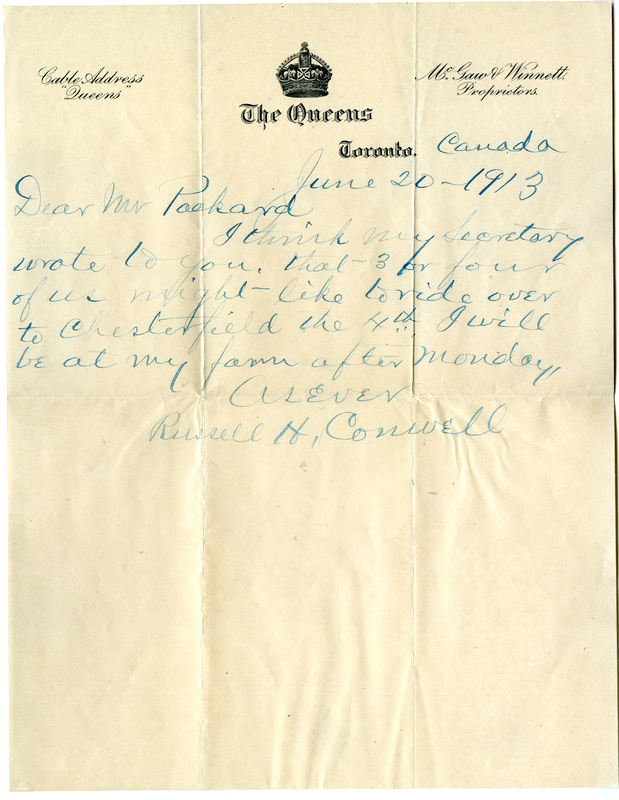 Cable Address
"Queens"
Mc. Gaw & Winnett.
Proprietors.
The Queens
Toronto. Canada
June 20-1913
Dear Mr Packard
I think my Secretary
wrote to you, that 3 or four
of us might like to ride over
to Chesterfield the 4th I will
be at my farm after Monday,
As Ever
Russell H, Conwell